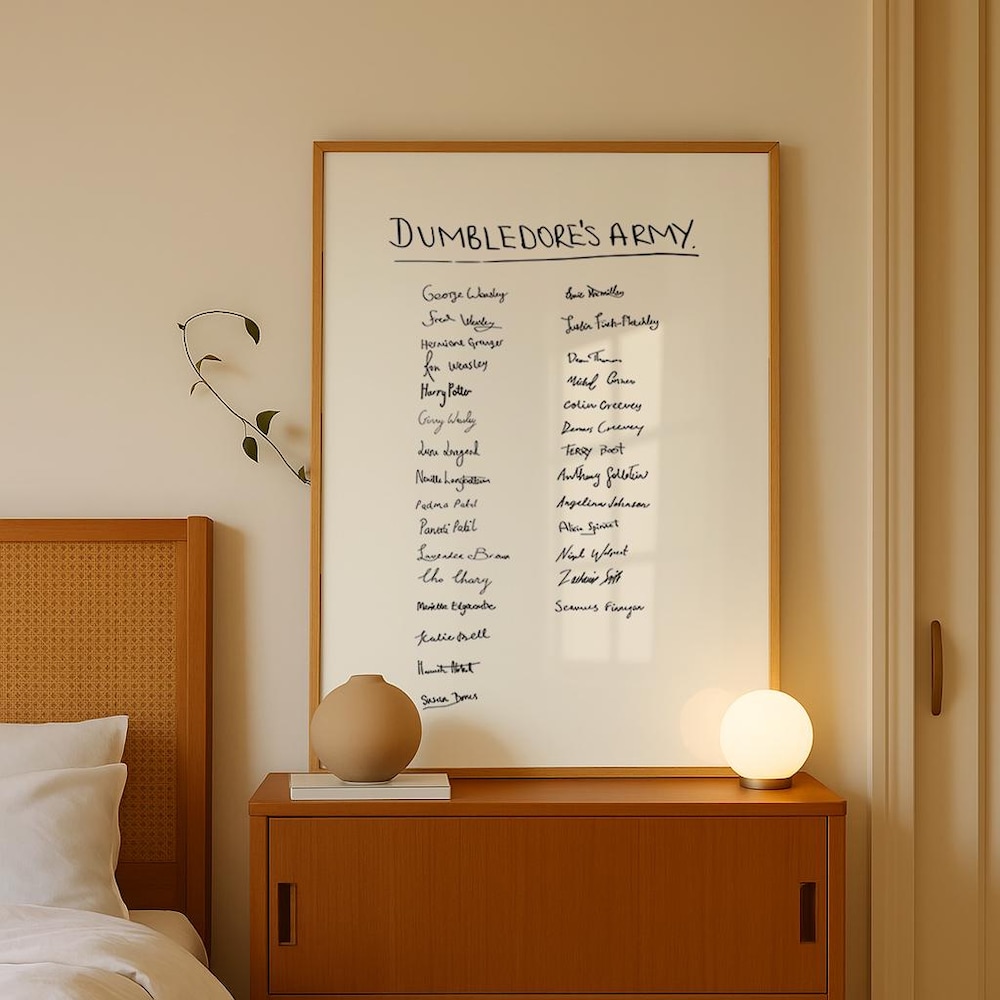 DUMBLEDORE'S ARMY.
George Weasley
Fred Weasley
Hermione Granger
Ron Weasley
Harry Potter
Ginny Weasley
Luna Lovgood
Neville Longbottom
Padma Patil
Parvati Patil
Lavender Brown
Cho Chang
Marietta Edgecombe
Katie Bell
Hannah Abbot
Susan Bones
Ernie Macmillan
Justin Finch-Fletchley
Dean Thomas
Michael Corner
Colin Creevey
Dennis Creevey
TERRY Boot
Anthony Goldstein
Angelina Johnson
Alicia Spinnet
Nigel Wolpert
Zacharias Smith
Seamus Finnigan